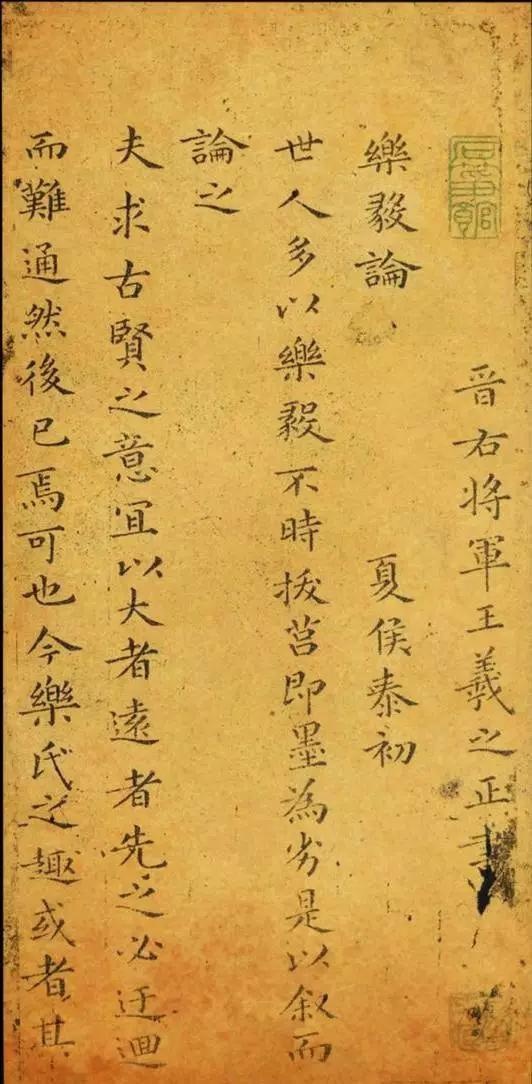 晉右將軍王羲之正書
樂毅論
夏侯泰初
世人多以樂毅不時拔莒即墨為劣是以叙而
論之
夫求古賢之意宜以大者遠者先之必迂迴
而難通然後已焉可也今樂氏之趣或者其